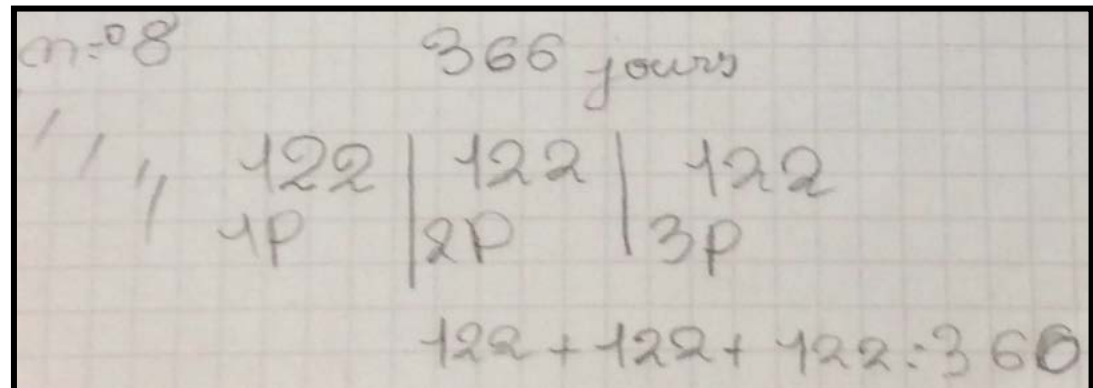 n=°8 366 jours
122 | 122 | 122
1P | 2P | 3P
122 + 122 + 122 = 366